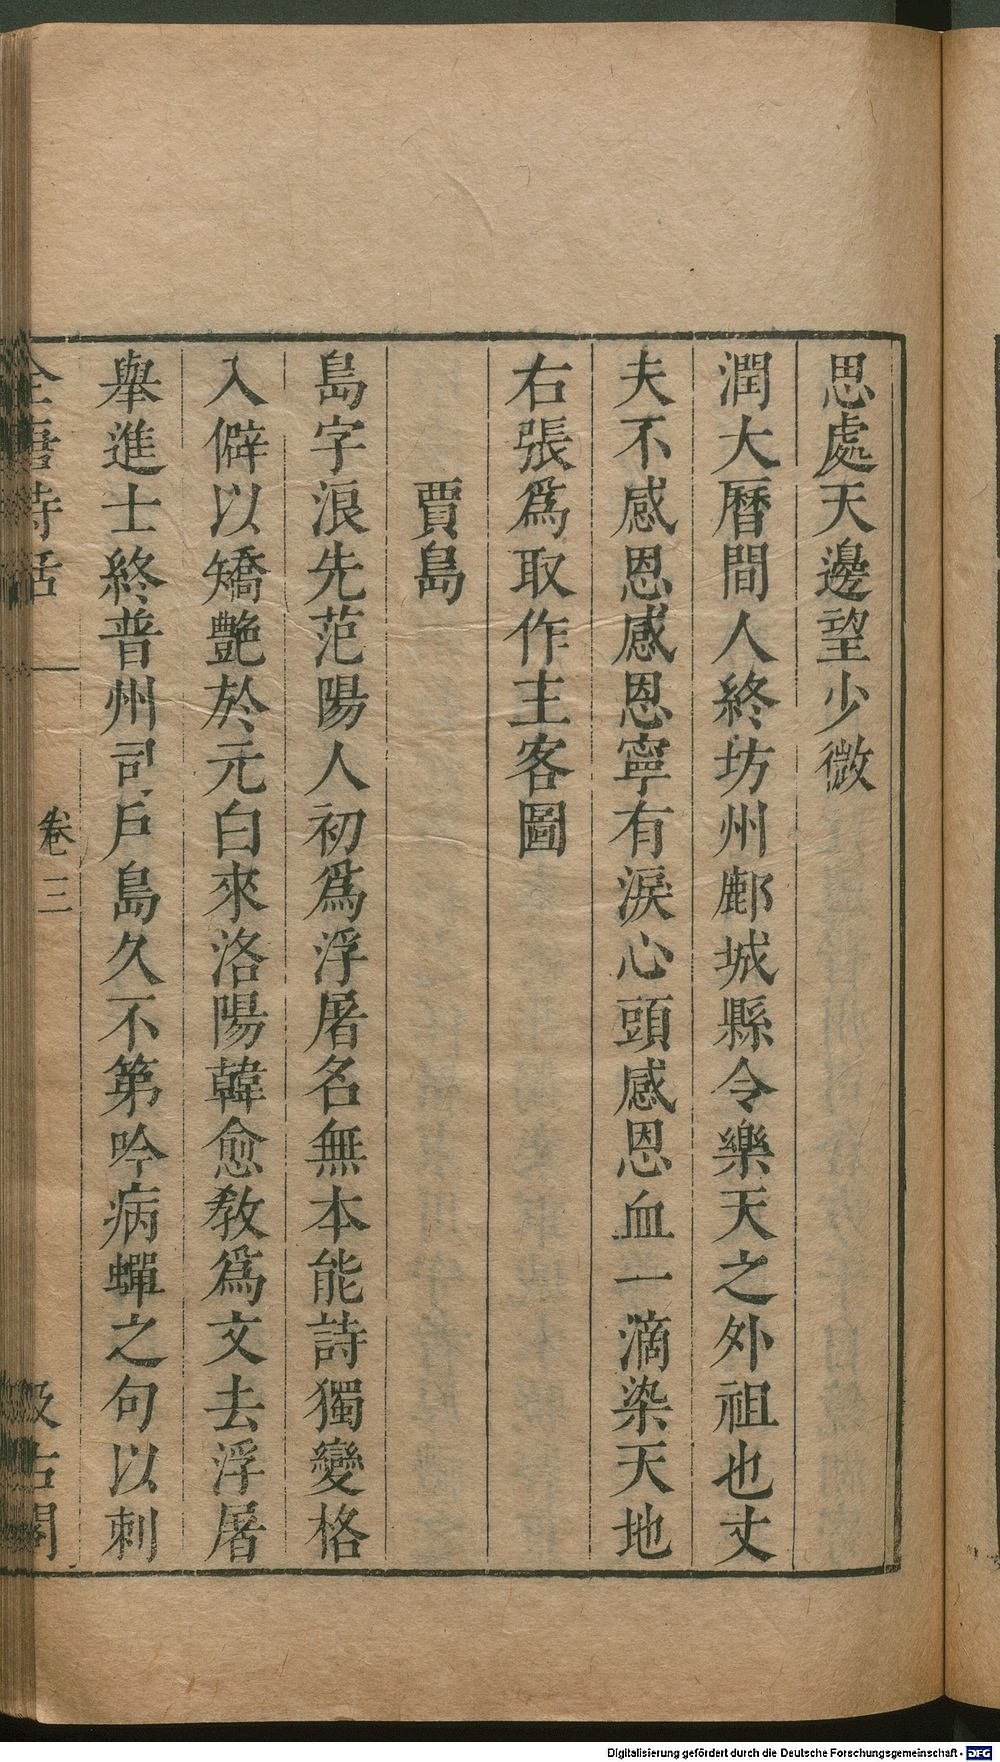 思處天邊望少微
潤大曆間人終坊州鄜城縣令樂天之外祖也丈
夫不感恩感恩寧有淚心頭感恩血一滴染天地
右張爲取作主客圖
賈島
島字浪先范陽人初爲浮屠名無本能詩獨變格
入僻以矯艷於元白來洛陽韓愈教爲文去浮屠
舉進士終普州司戶島久不第吟病蟬之句以刺
全唐詩話 卷三 汲古閣
Digitalisierung gefördert durch die Deutsche Forschungsgemeinschaft - DFG